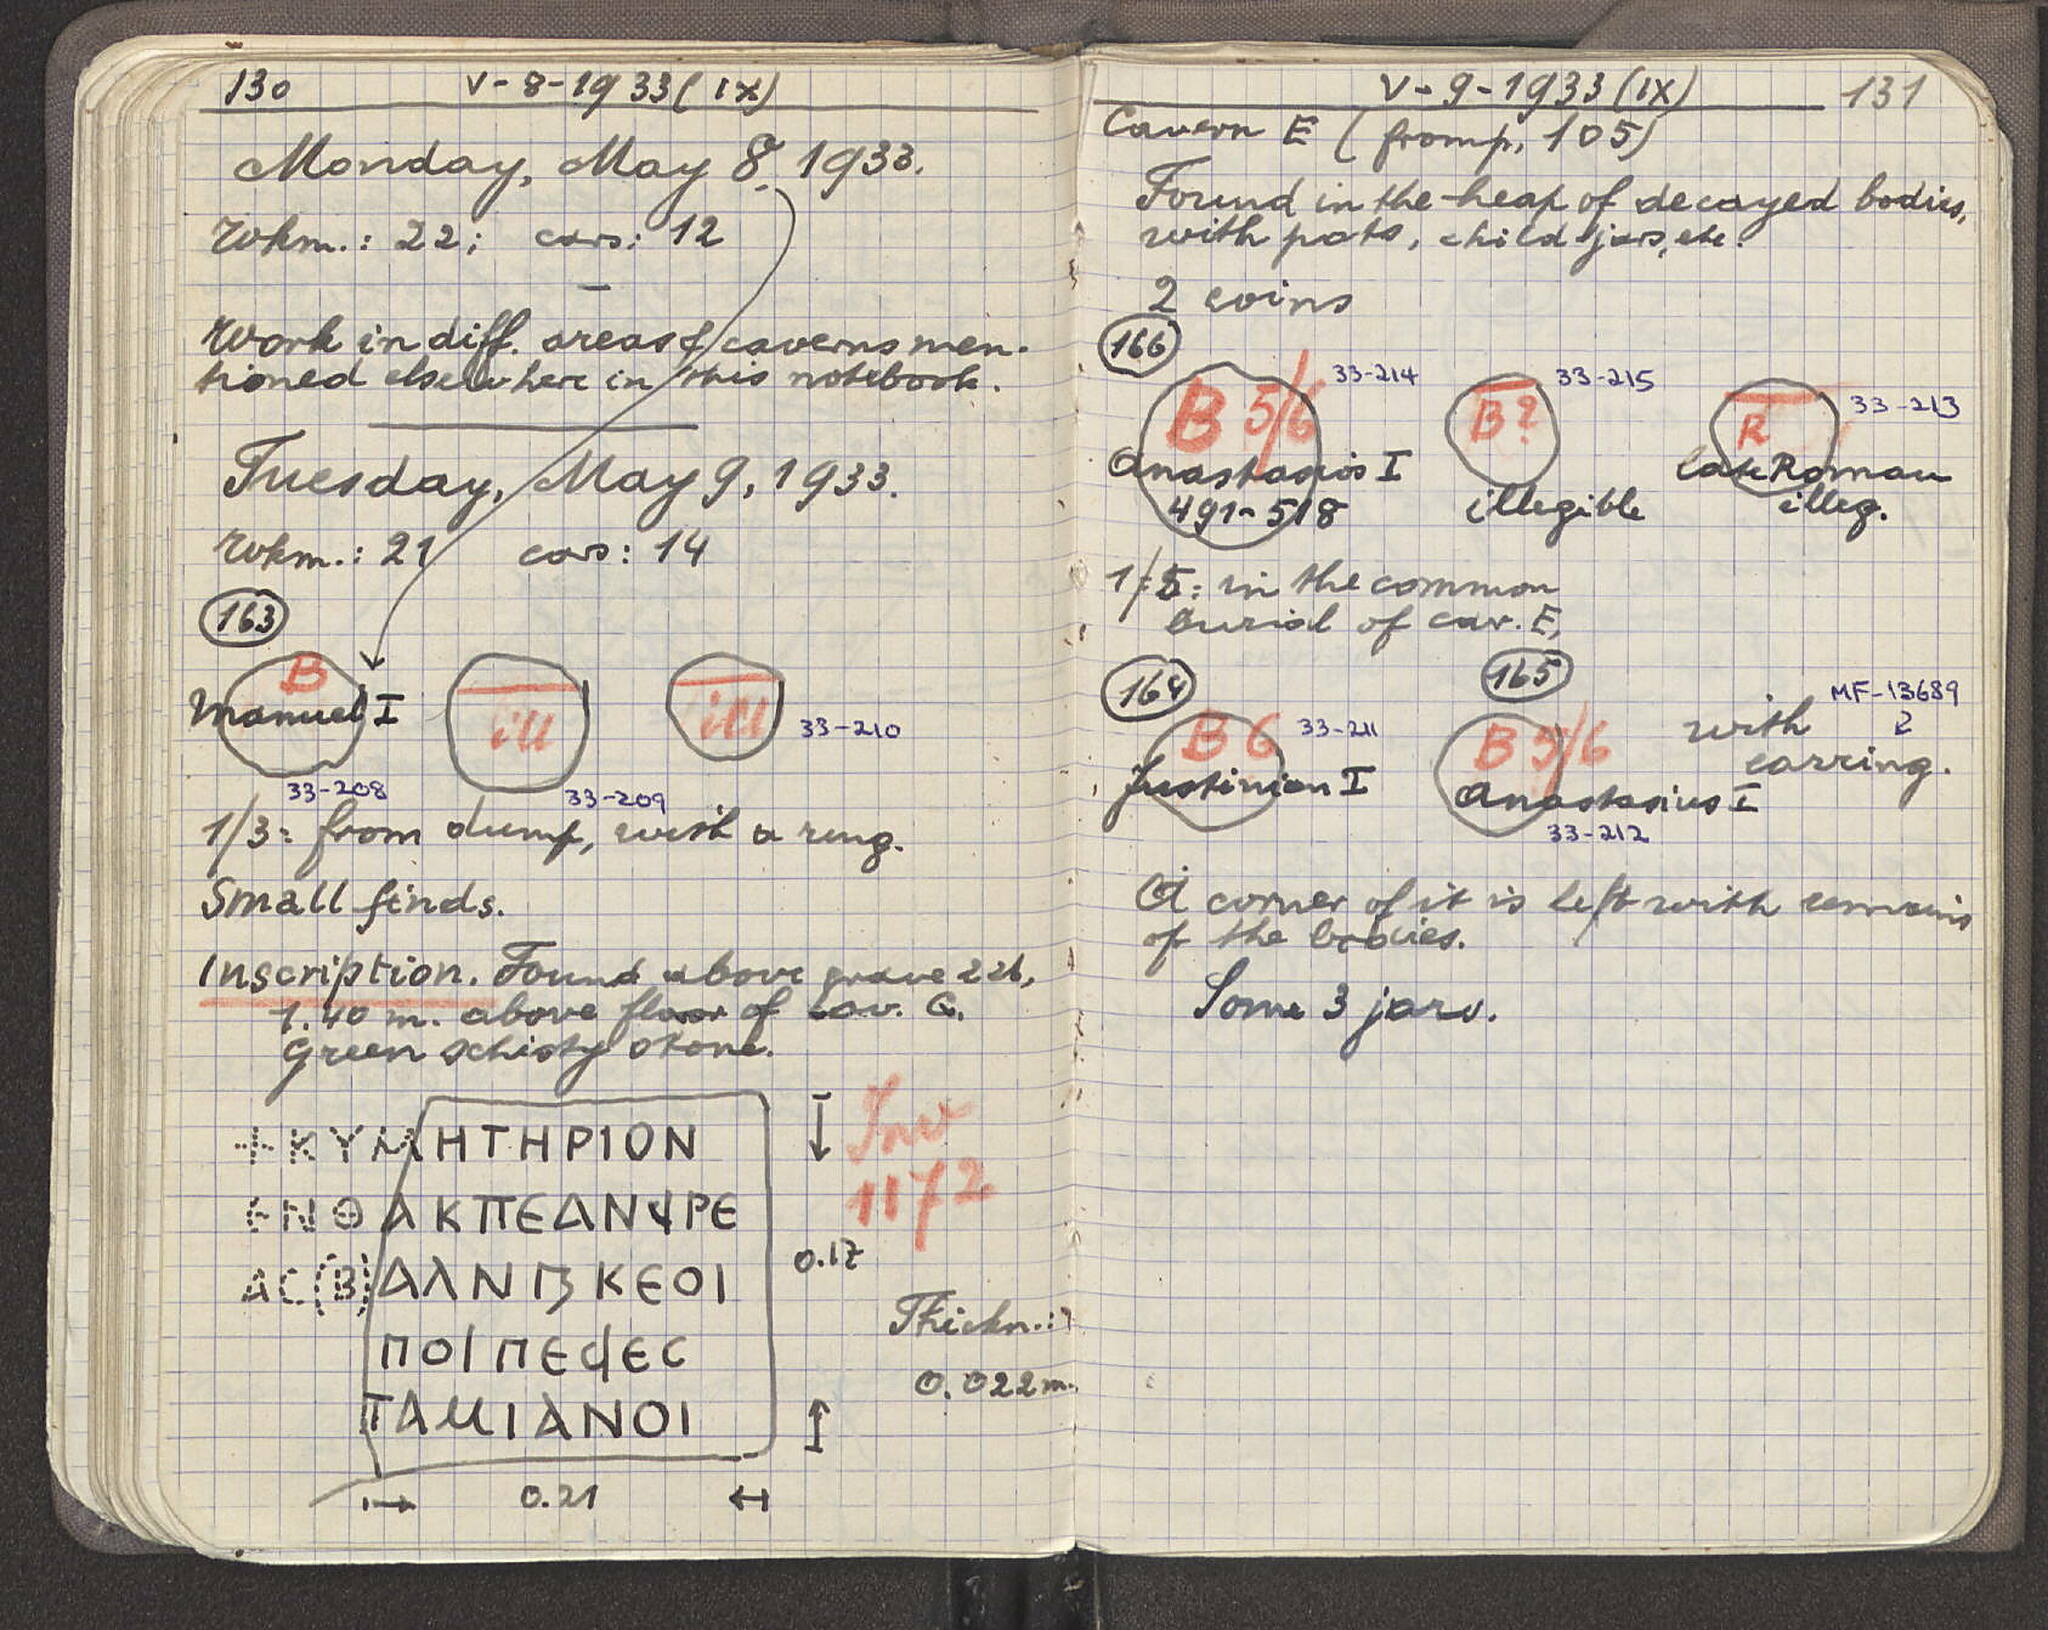 130 V-8-1933(IX)
Monday, May 8, 1933.
Wkm.: 22; cars: 12
Work in diff. areas & caverns men-
tioned elsewhere in this notebook.
Tuesday, May 9, 1933.
Wkm.: 21 cars: 14
163
B ill ill
Manuel I
33-208 33-209 33-210
1/3: from dump, with a ring.
Small finds.
Inscription. Found above grave 226,
1.40 m. above floor of cav. G.
Green schisty stone.
+ΚΥΜΗΤΗΡΙΟΝ
ΕΝΘΑΚΠΕΑΝ ΡΕ
ΑC(Β)ΑΛΝ ΚΕΟΙ
ΠΟΙΠΕ ΕC
ΤΑΜΙΑΝΟΙ
Inv
1172
0.17
Thickn.:
0.022 m.
0.21
V-9-1933(IX) 131
Cavern E (from p. 105)
Found in the heap of decayed bodies,
with pots, child jars, etc.
2 coins
166
33-214 33-215 33-213
B 5/6 B? R
Anastasios I illegible late Roman
491-518 illeg.
1/5: in the common
burial of cav. E,
164 165
B 6 33-211 B 5/6 with MF-13689
2
earring.
Justinian I Anastasius I
33-212
A corner of it is left with remains
of the bodies.
Some 3 jars.